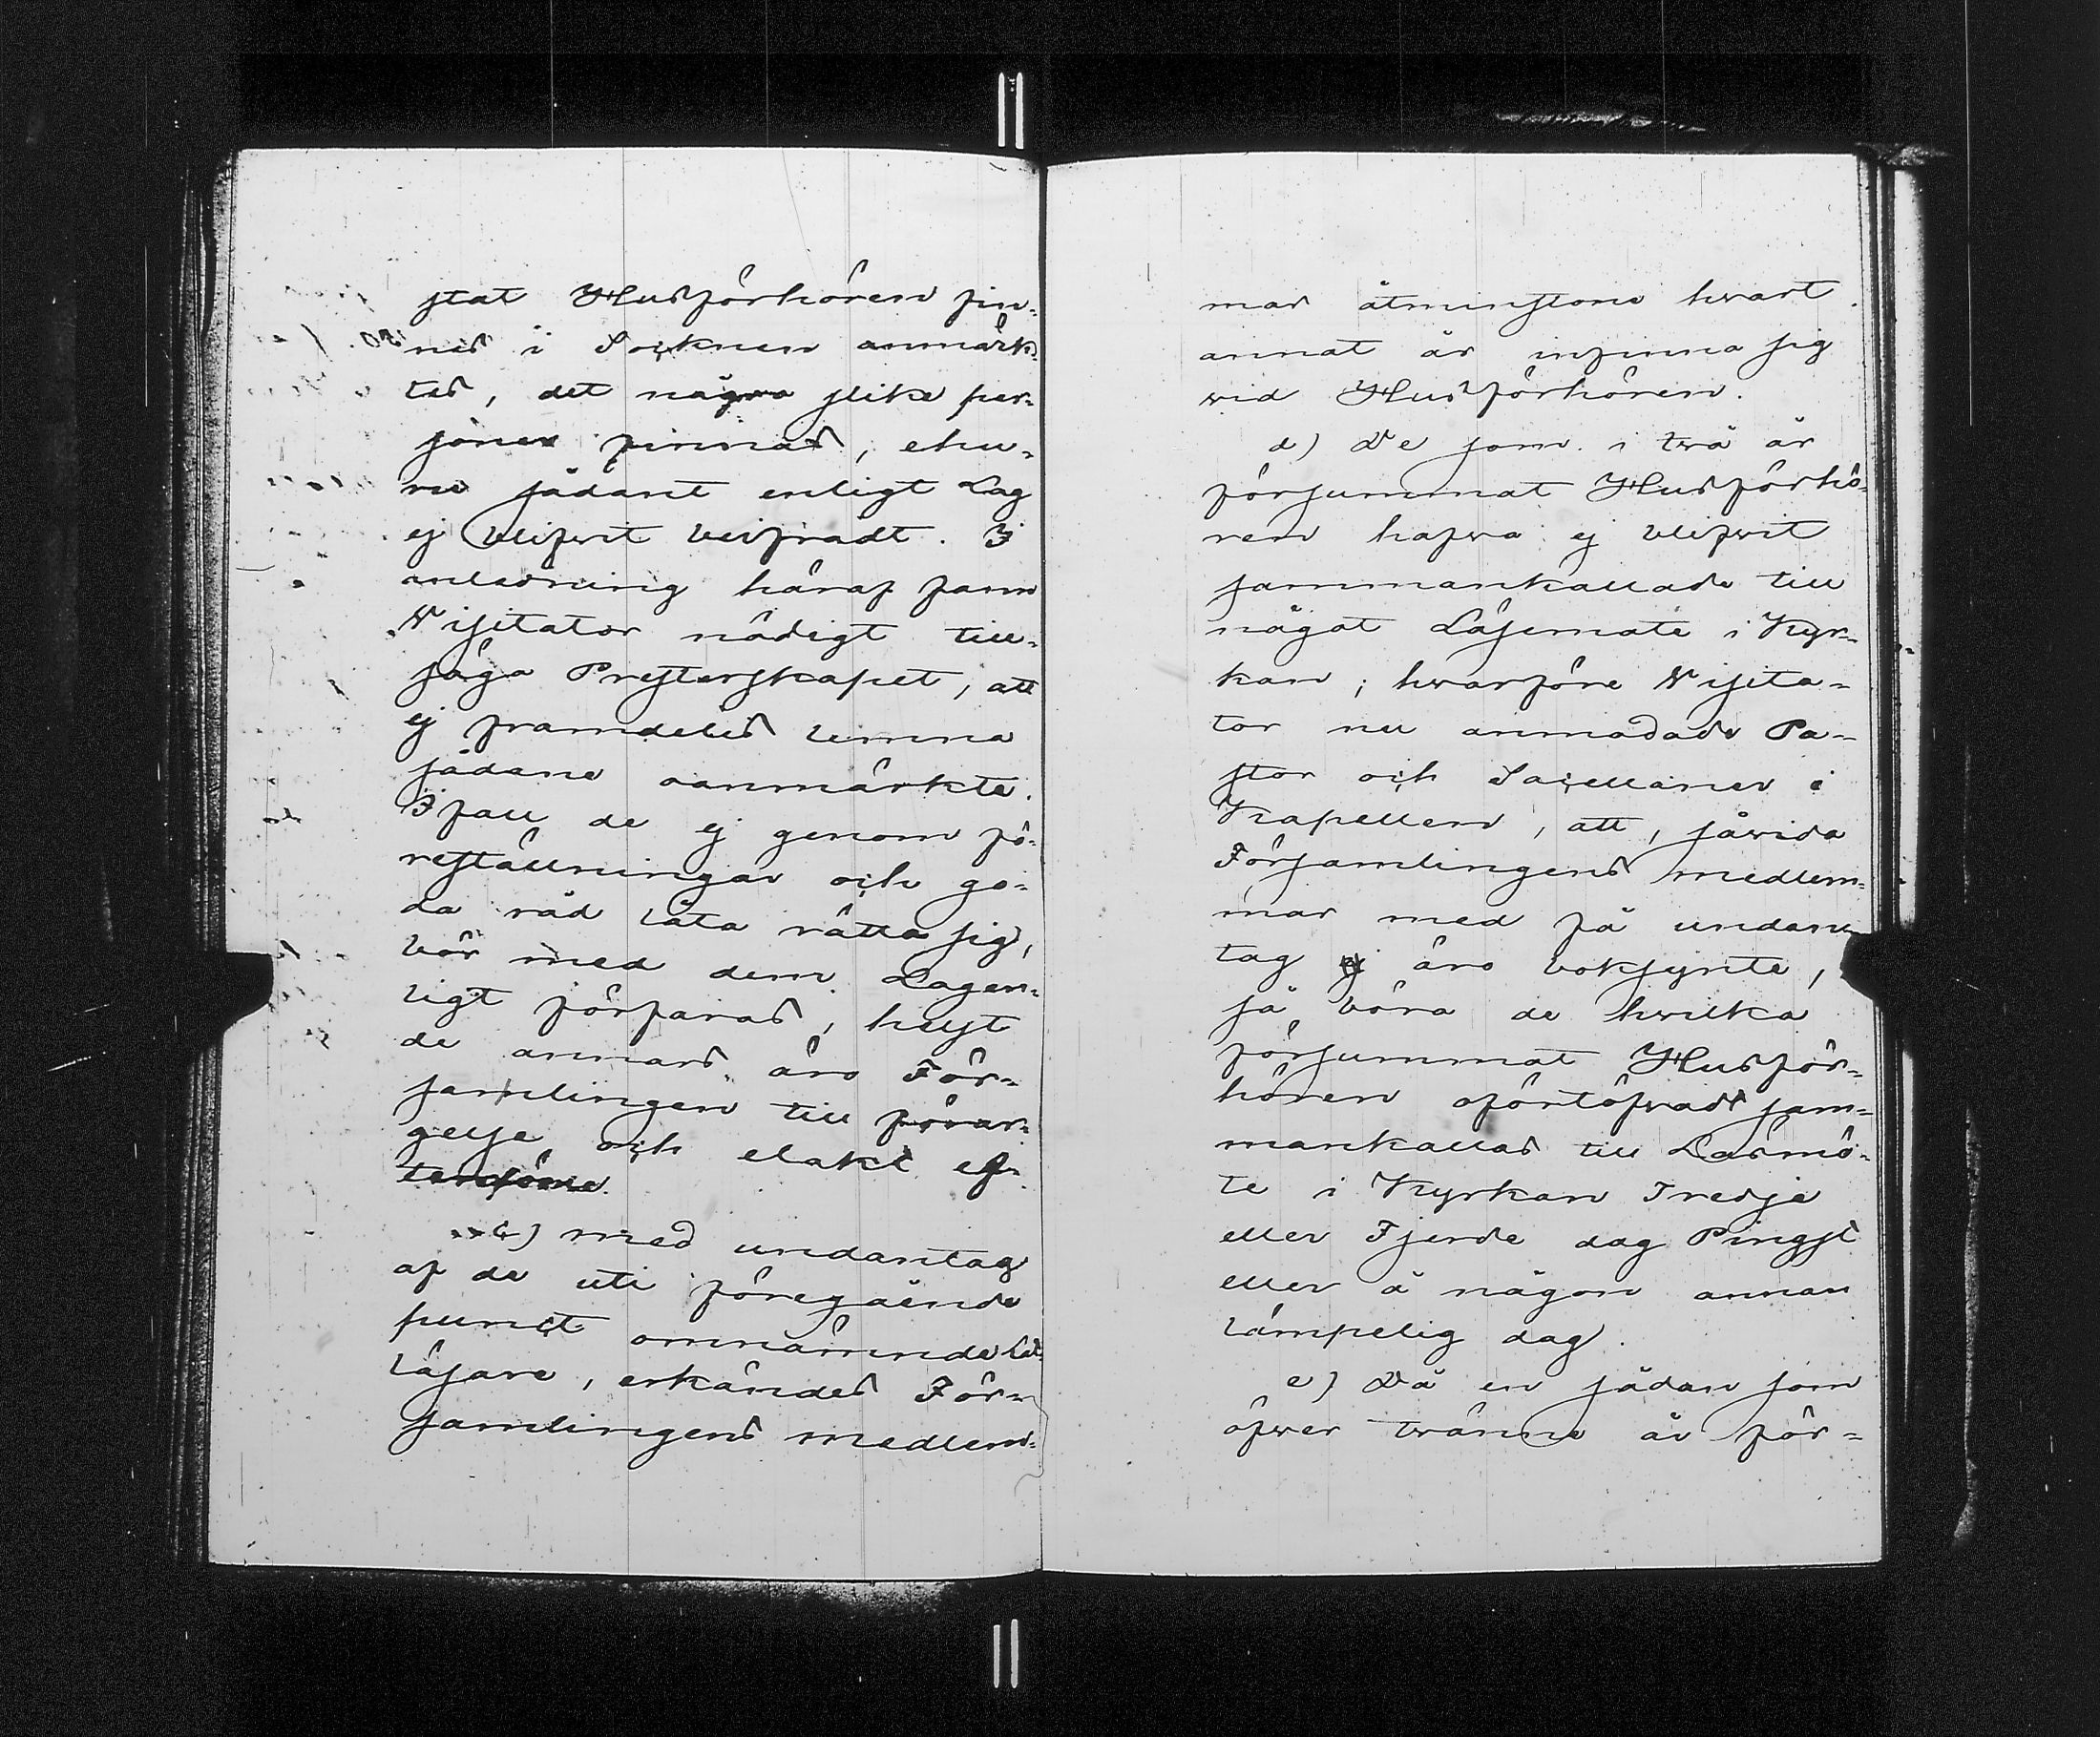 stat Husförhören fin-
nes i Socknen anmärk-
tes, det några slike per-
soner finnas, ehu-
ru sådant enligt Lag
ej blifwit beifradt. I
anledning häraf fann
Visitator nödigt till-
säga Presterskapet, att
ej framdeles lemna
sådane oanmärkte.
Ifall de ej genom fö-
reställningar och go-
da råd låta rätta sig,
bör med dem Lagen-
ligt förfaras, helst
de annars äro För-
samlingen till förar-
gelse och elakt ef-
terdöme.
c) med undantag
af de uti föregående
punct omnämnde Lät-
läsare, erkändes För-
samlingens medlem-
mar åtminstone hwart
annat år infinna sig
wid Husförhören.
d) De som i twå år
försummat Husförhö-
ren hafwa ej blifwit
sammankallade till
något Läsemöte i Kyr-
kan; hwarföre Visita-
tor nu anmodade Pa-
stor och Sacellaner i
Kapellen, att, såwida
Församlingens medlem-
mar med få undan-
tag ej äro boksynte,
så böra de hwilka
försummat Husför-
hören oförtöfwadt sam-
mankallas till Läsmö-
te i Kyrkan Tredje
eller Fjerde dag Pingst
eller å någon annan
lämpelig dag.
e) Då en sådan som
öfwer twänne år för-